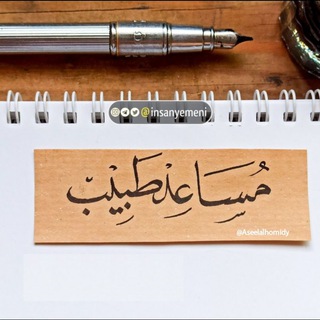 @insanyemeni
مُسَاعِدْ طَبِيْبْ
@Aseelalhomidy